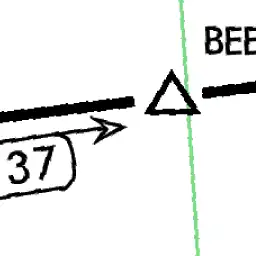 BEE
37